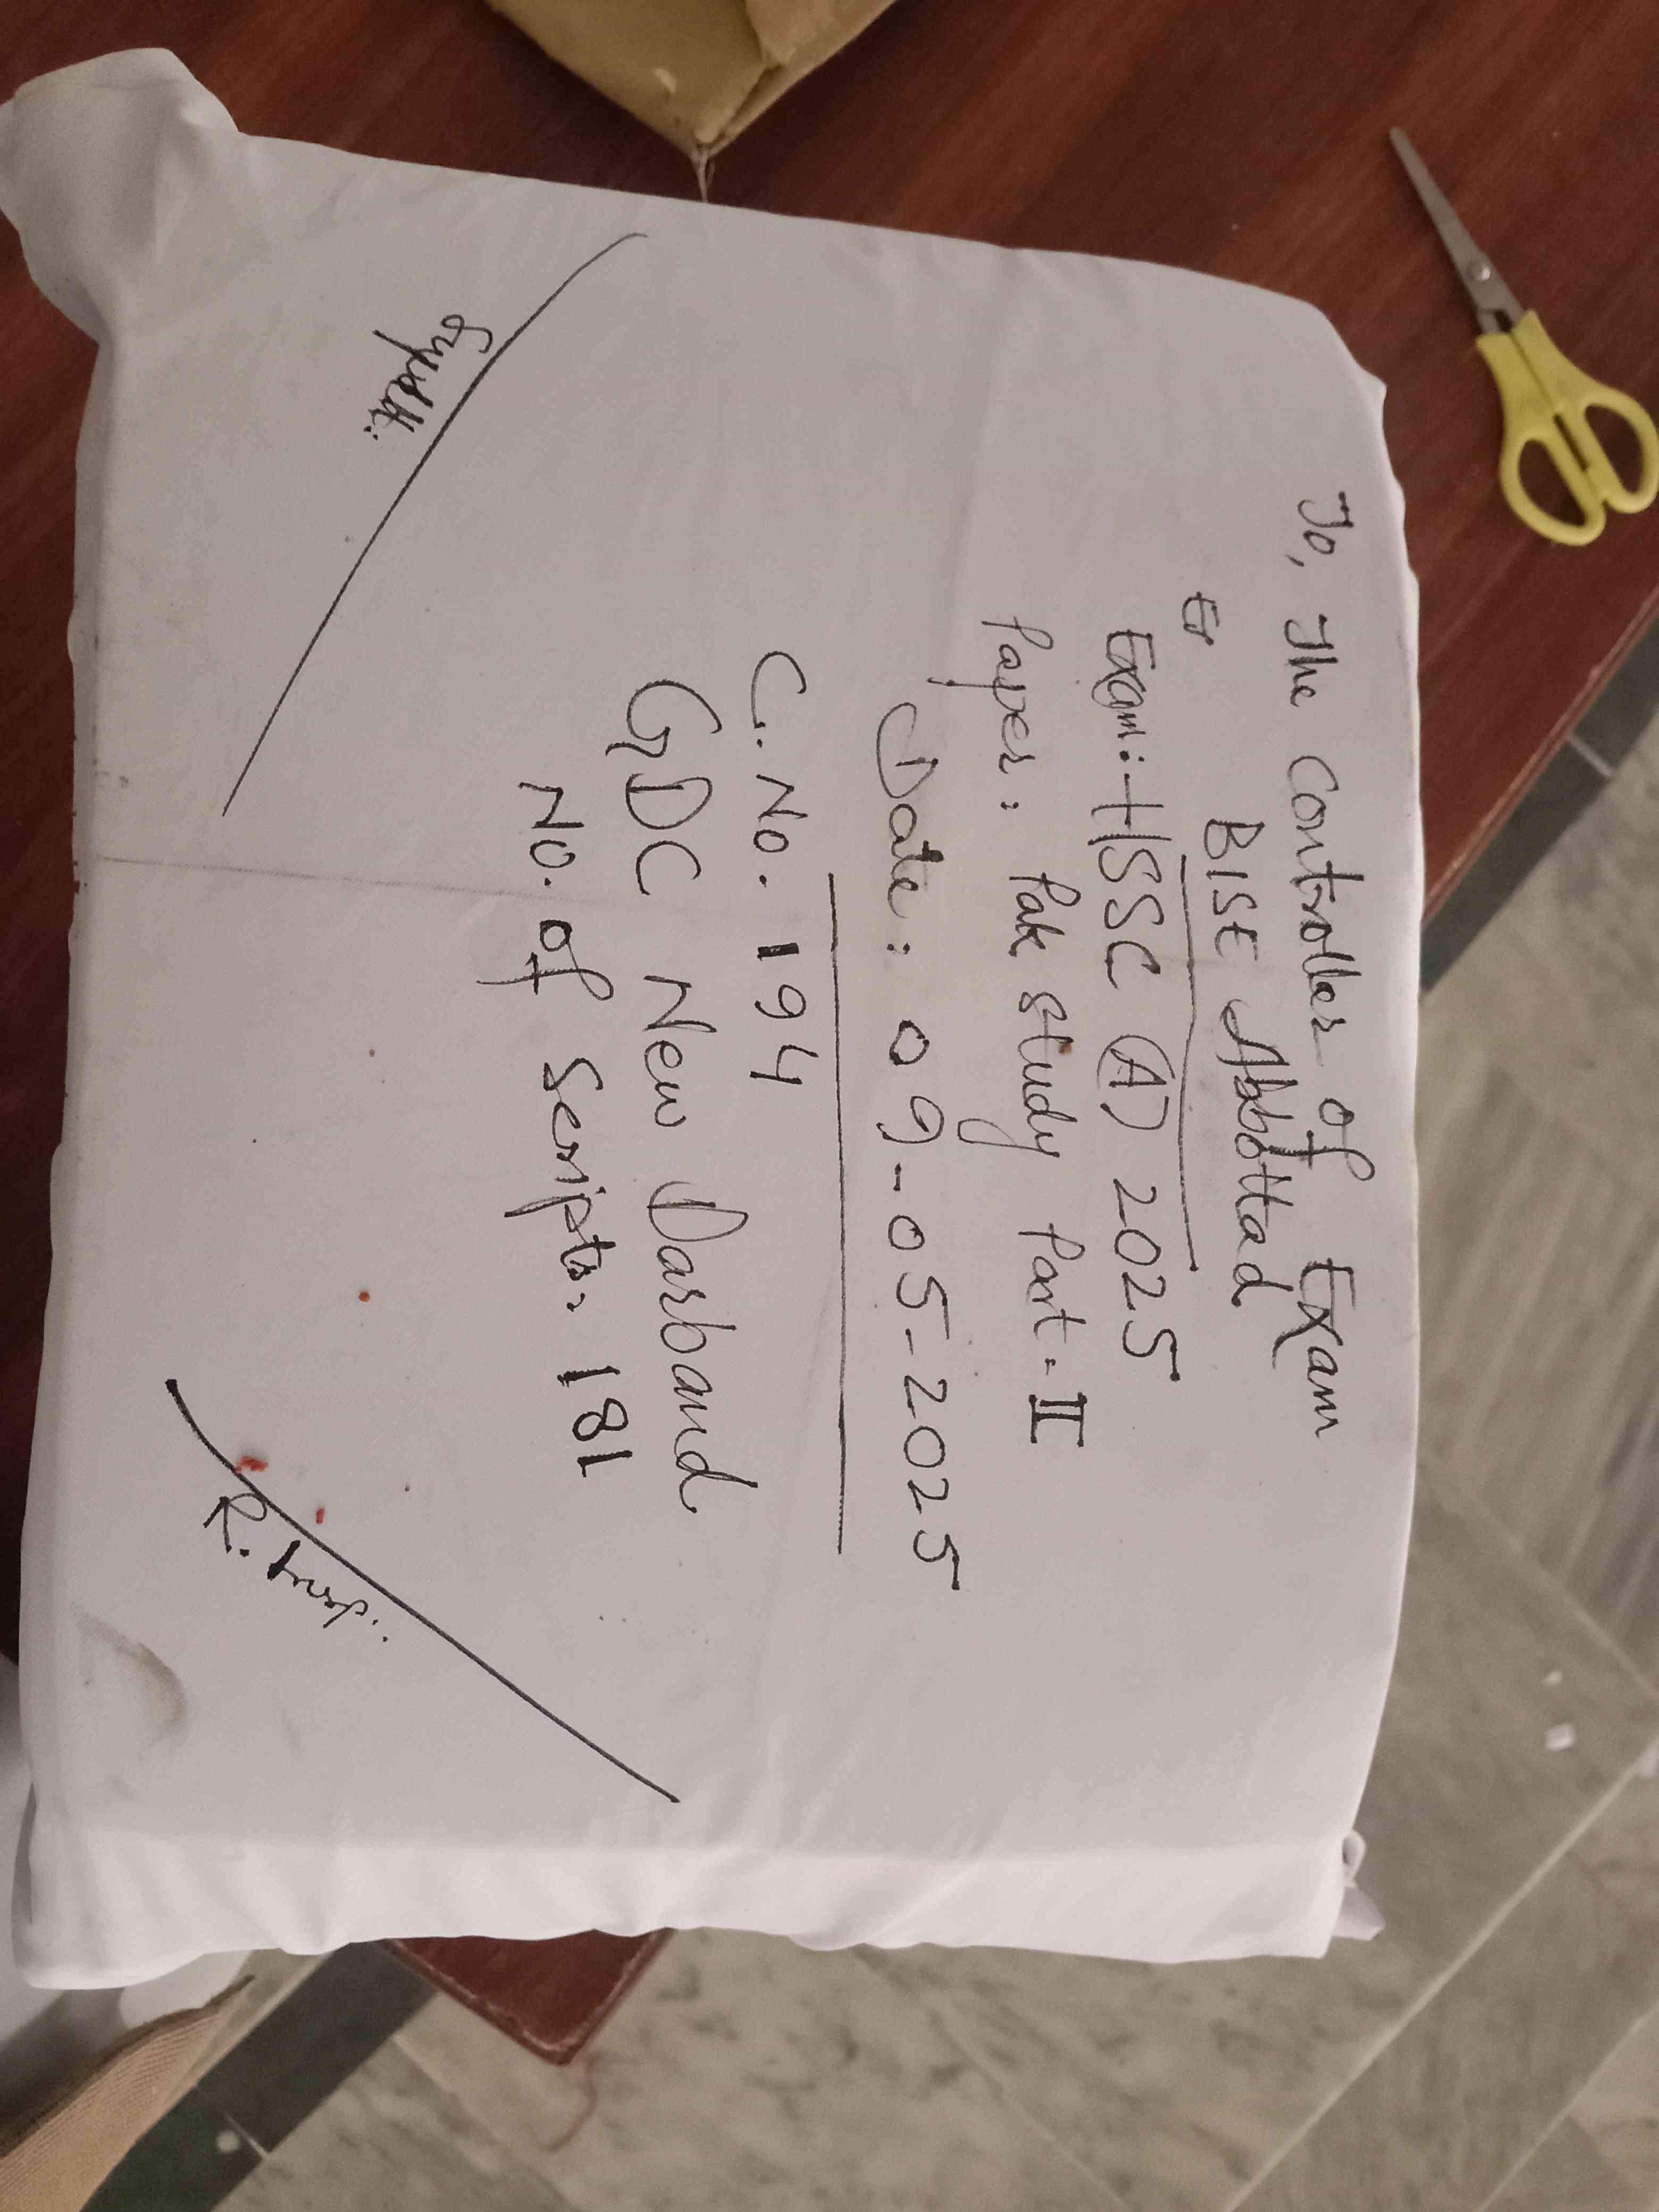 To, The Controller of Exam
BISE Abbottad
Ex
Exam: HSSC (A) 2025
Paper: Pak study Part-II
Date: 09-05-2025
C.No. 194
GDC New Darband
No. of Scripts: 181
Supdtt:
R.I